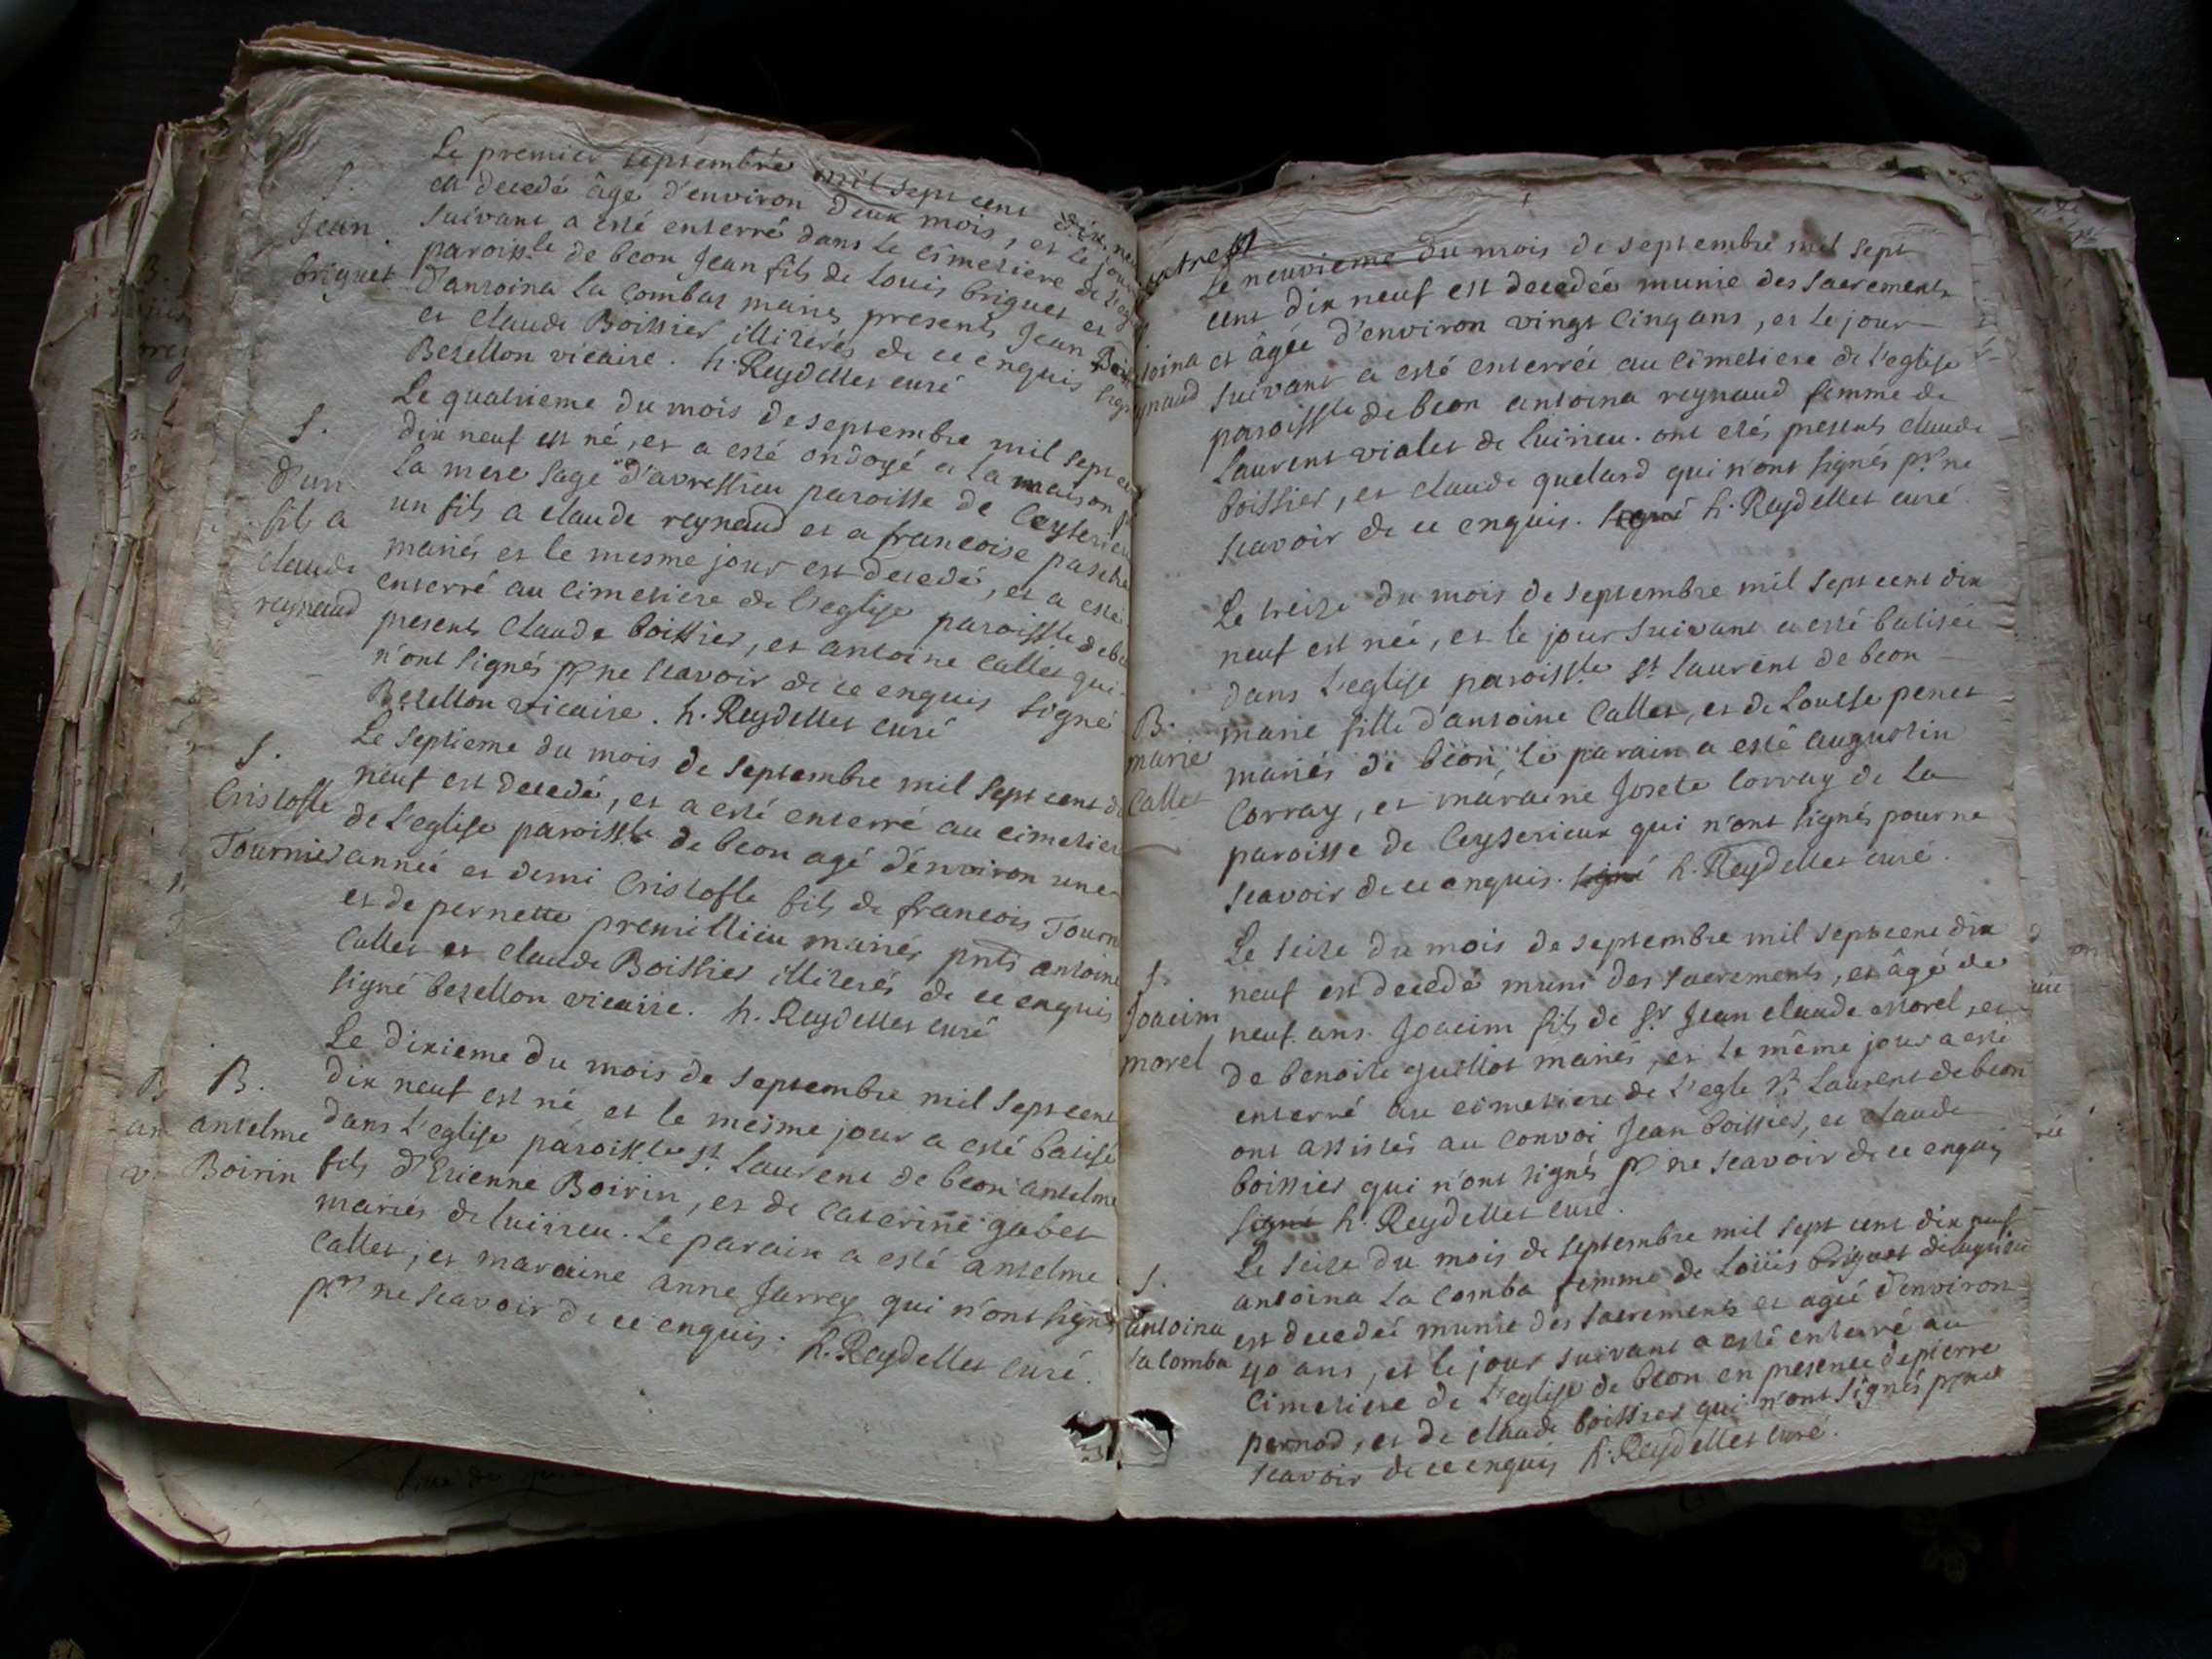 Le premier septembre mil sept cent dix neu
S. est decedé âgé d'environ deux mois, et le jour
Jean suivant a esté enterré dans le cimetiere de
briguet paroissle de beon Jean fils de Louis briguet et
d'antoina La Combaz mariés presents Jean
et claude Boissier illiterés de ce enquis
Bezellon vicaire. h. Reydellet curé
Le quatrieme du mois de septembre mil sept
S. dix neuf est né, et a esté ondoyé a la maison
d'un la mere sage d'avressieu paroisse de Ceyserieu
fils a un fils a claude reynaud et a francoise
claude mariés et le mesme jour est decedé, et a esté
reynaud enterré au cimetiere de l'eglise paroissle de
presents Claude boissier, et antoine Callet qui
n'ont signés pr ne scavoir de ce enquis signé
Bezellon vicaire. h. Reydellet curé
Le septieme du mois de septembre mil sept cent
S. neuf est decedé, et a esté enterré au cimetier
Cristofle de l'eglise paroissle de beon agé d'environ une
Tournier année et demi Cristofle fils de francois Tourn
et de pernette premillieu mariés pnts antoine
Callet et claude Boissier illiterés de ce enquis
signé bezellon vicaire. h. Reydellet curé
Le dixieme du mois de septembre mil sept cent
B. dix neuf est né et le mesme jour a esté batisé
antelme dans l'eglise paroissle st. Laurent de beon antelme
Boirin fils d'Etienne Boirin, et de Caterine gabet
mariés de luirieu. Le parain a esté antelme
Callet, et maraine anne Jarrey qui n'ont signés
pr ne scavoir de ce enquis. h. Reydellet curé.
Le neuvieme du mois de septembre mil sept
cent dix neuf est decedée munie des sacrements
toina et âgée d'environ vingt cinq ans, et le jour
ynaud suivant a esté enterrée au cimetiere de l'eglise
paroissle de beon antoina reynaud femme de
Laurent violet de luirieu. ont etés presents claude
boissier, et claude quelard qui n'ont signés pr ne
scavoir de ce enquis. signé h. Reydellet curé.
Le treize du mois de septembre mil sept cent dix
neuf est née, et le jour suivant a esté batisée
dans l'eglise paroissle st Laurent de beon
B. marie fille d'antoine Callet, et de Louise penet
marie mariés de beon, le parain a esté augustin
Callet Corray, et maraine Josete Corray de la
paroisse de Ceyserieux qui n'ont signés pour ne
scavoir de ce enquis. signé h. Reydellet curé.
Le seize du mois de septembre mil sept cent dix
S. neuf est decedé muni des sacrements, et âgé de
Joacim neuf ans. Joacim fils de sr. Jean claude morel, et
morel de benoite guillot mariés, et le même jour a esté
enterré au cimetiere de l'egle st Laurent de beon
ont assistés au convoi Jean boissier, et claude
boissier qui n'ont signés pr ne scavoir de ce enquis
signé h. Reydellet curé.
Le seize du mois de septembre mil sept cent dix neuf
S. antoina La Comba femme de Loüis briguet de
antoina est decedée munie des sacrements et agée d'environ
la comba 40 ans, et le jour suivant a esté enterré au
Cimetiere de l'eglise de beon en presence de pierre
pernod, et de claude boissier qui n'ont signés pr ne
scavoir de ce enquis h. Reydellet curé.